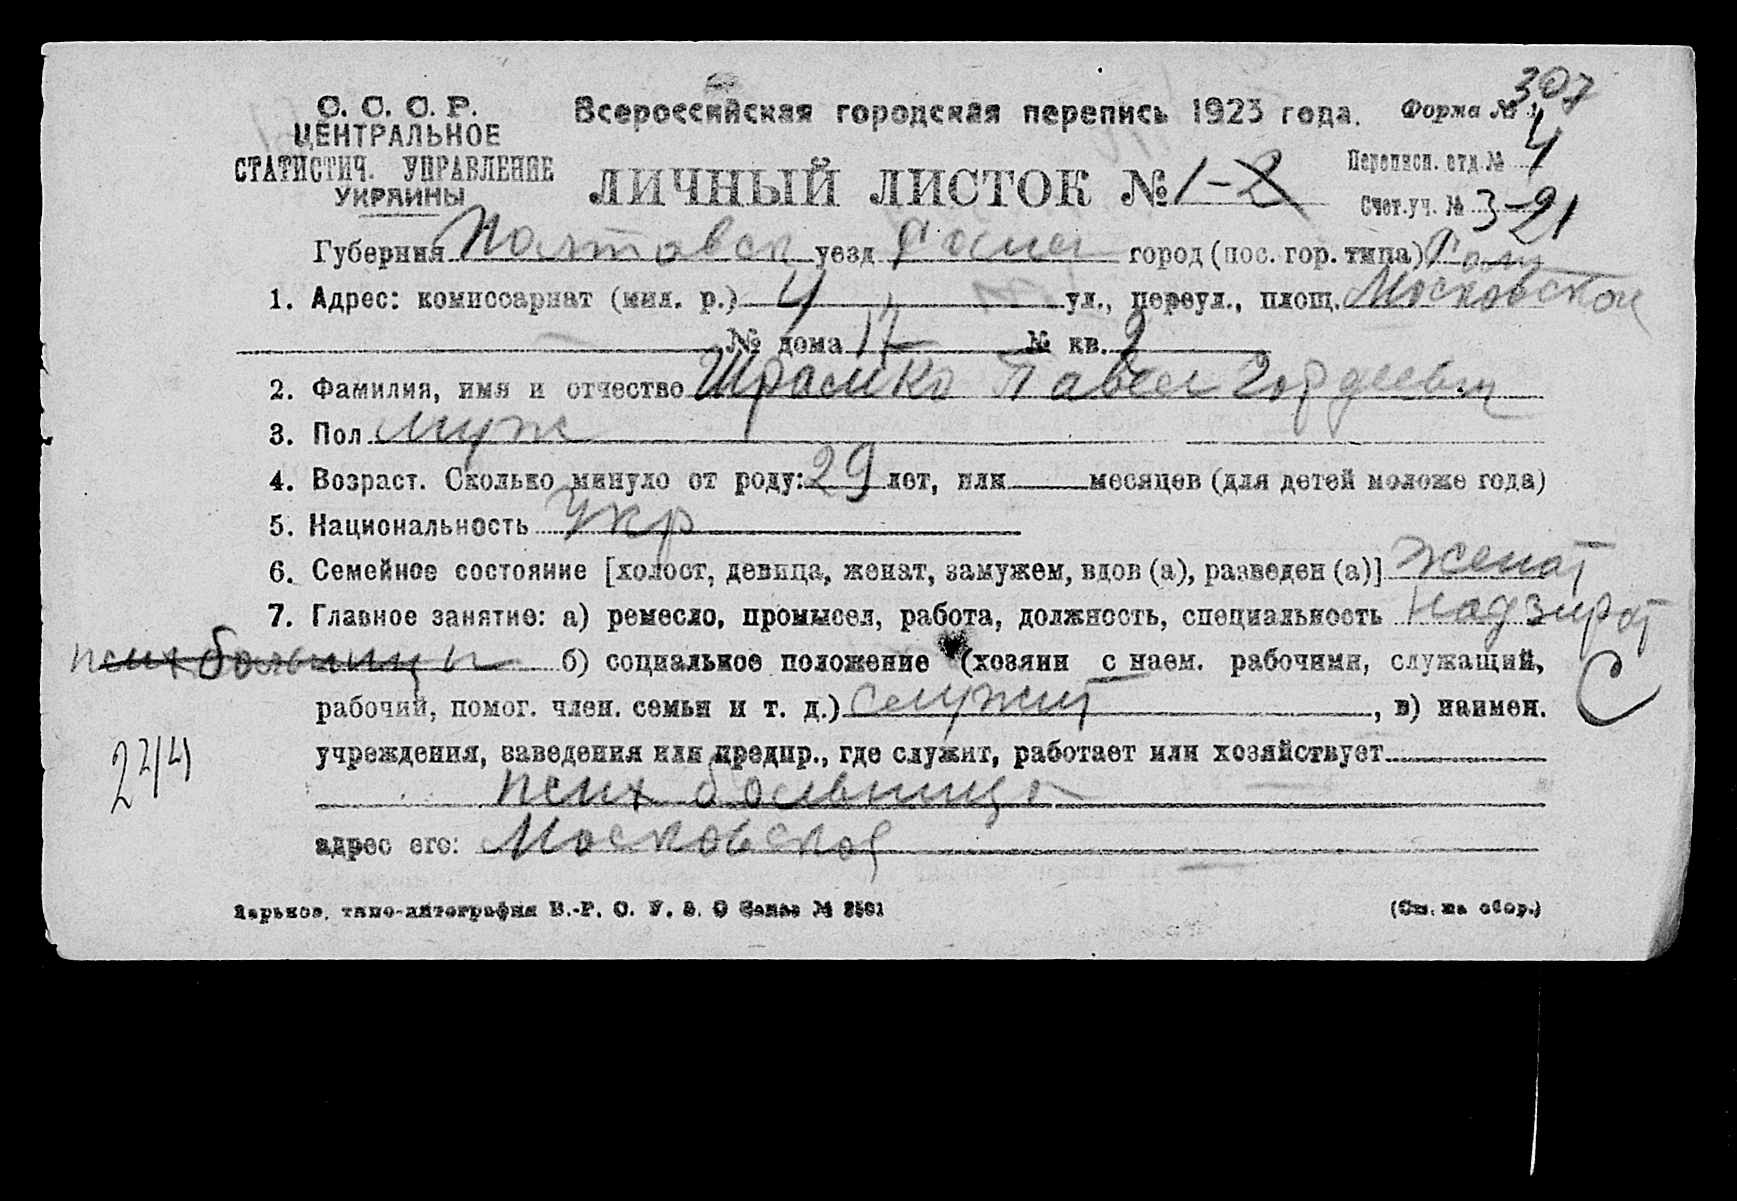 307
С. С. С. Р.
ЦЕНТРАЛЬНОЕ
СТАТИСТИЧ. УПРАВЛЕНИЕ
УКРАИНЫ
Всероссийская городская перепись 1923 года.
Форма №
ЛИЧНЫЙ ЛИСТОК № 1-2
Переписн. отд. № 4
Счет.уч. № 3-21
Губерния Полтавск уезд Ромен город (пос. гор. типа) Ром
1. Адрес: комиссариат (мил. р.) 4 ул., переул., площ. Московская
№ дома 17 № кв. 2
2. Фамилия, имя и отчество Шрамко Павел Гордеевич
3. Пол муж
4. Возраст. Сколько минуло от роду: 29 лет, или месяцев (для детей моложе года)
5. Национальность Укр
6. Семейное состояние [холост, девица, женат, замужем, вдов (а), разведен (а)] женат
7. Главное занятие: а) ремесло, промысел, работа, должность, специальность надзират
псих больницы б) социальное положение (хозяин с наем. рабочими, служащий,
рабочий, помог. член. семьи и т. д.) служит, в) наимен. С
учреждения, заведения или предпр., где служит, работает или хозяйствует
244
псих больница
адрес его: Московская
Харьков, типо-литография В.-Р. О. У. В. О Заказ № 8561
(См. на обор.)